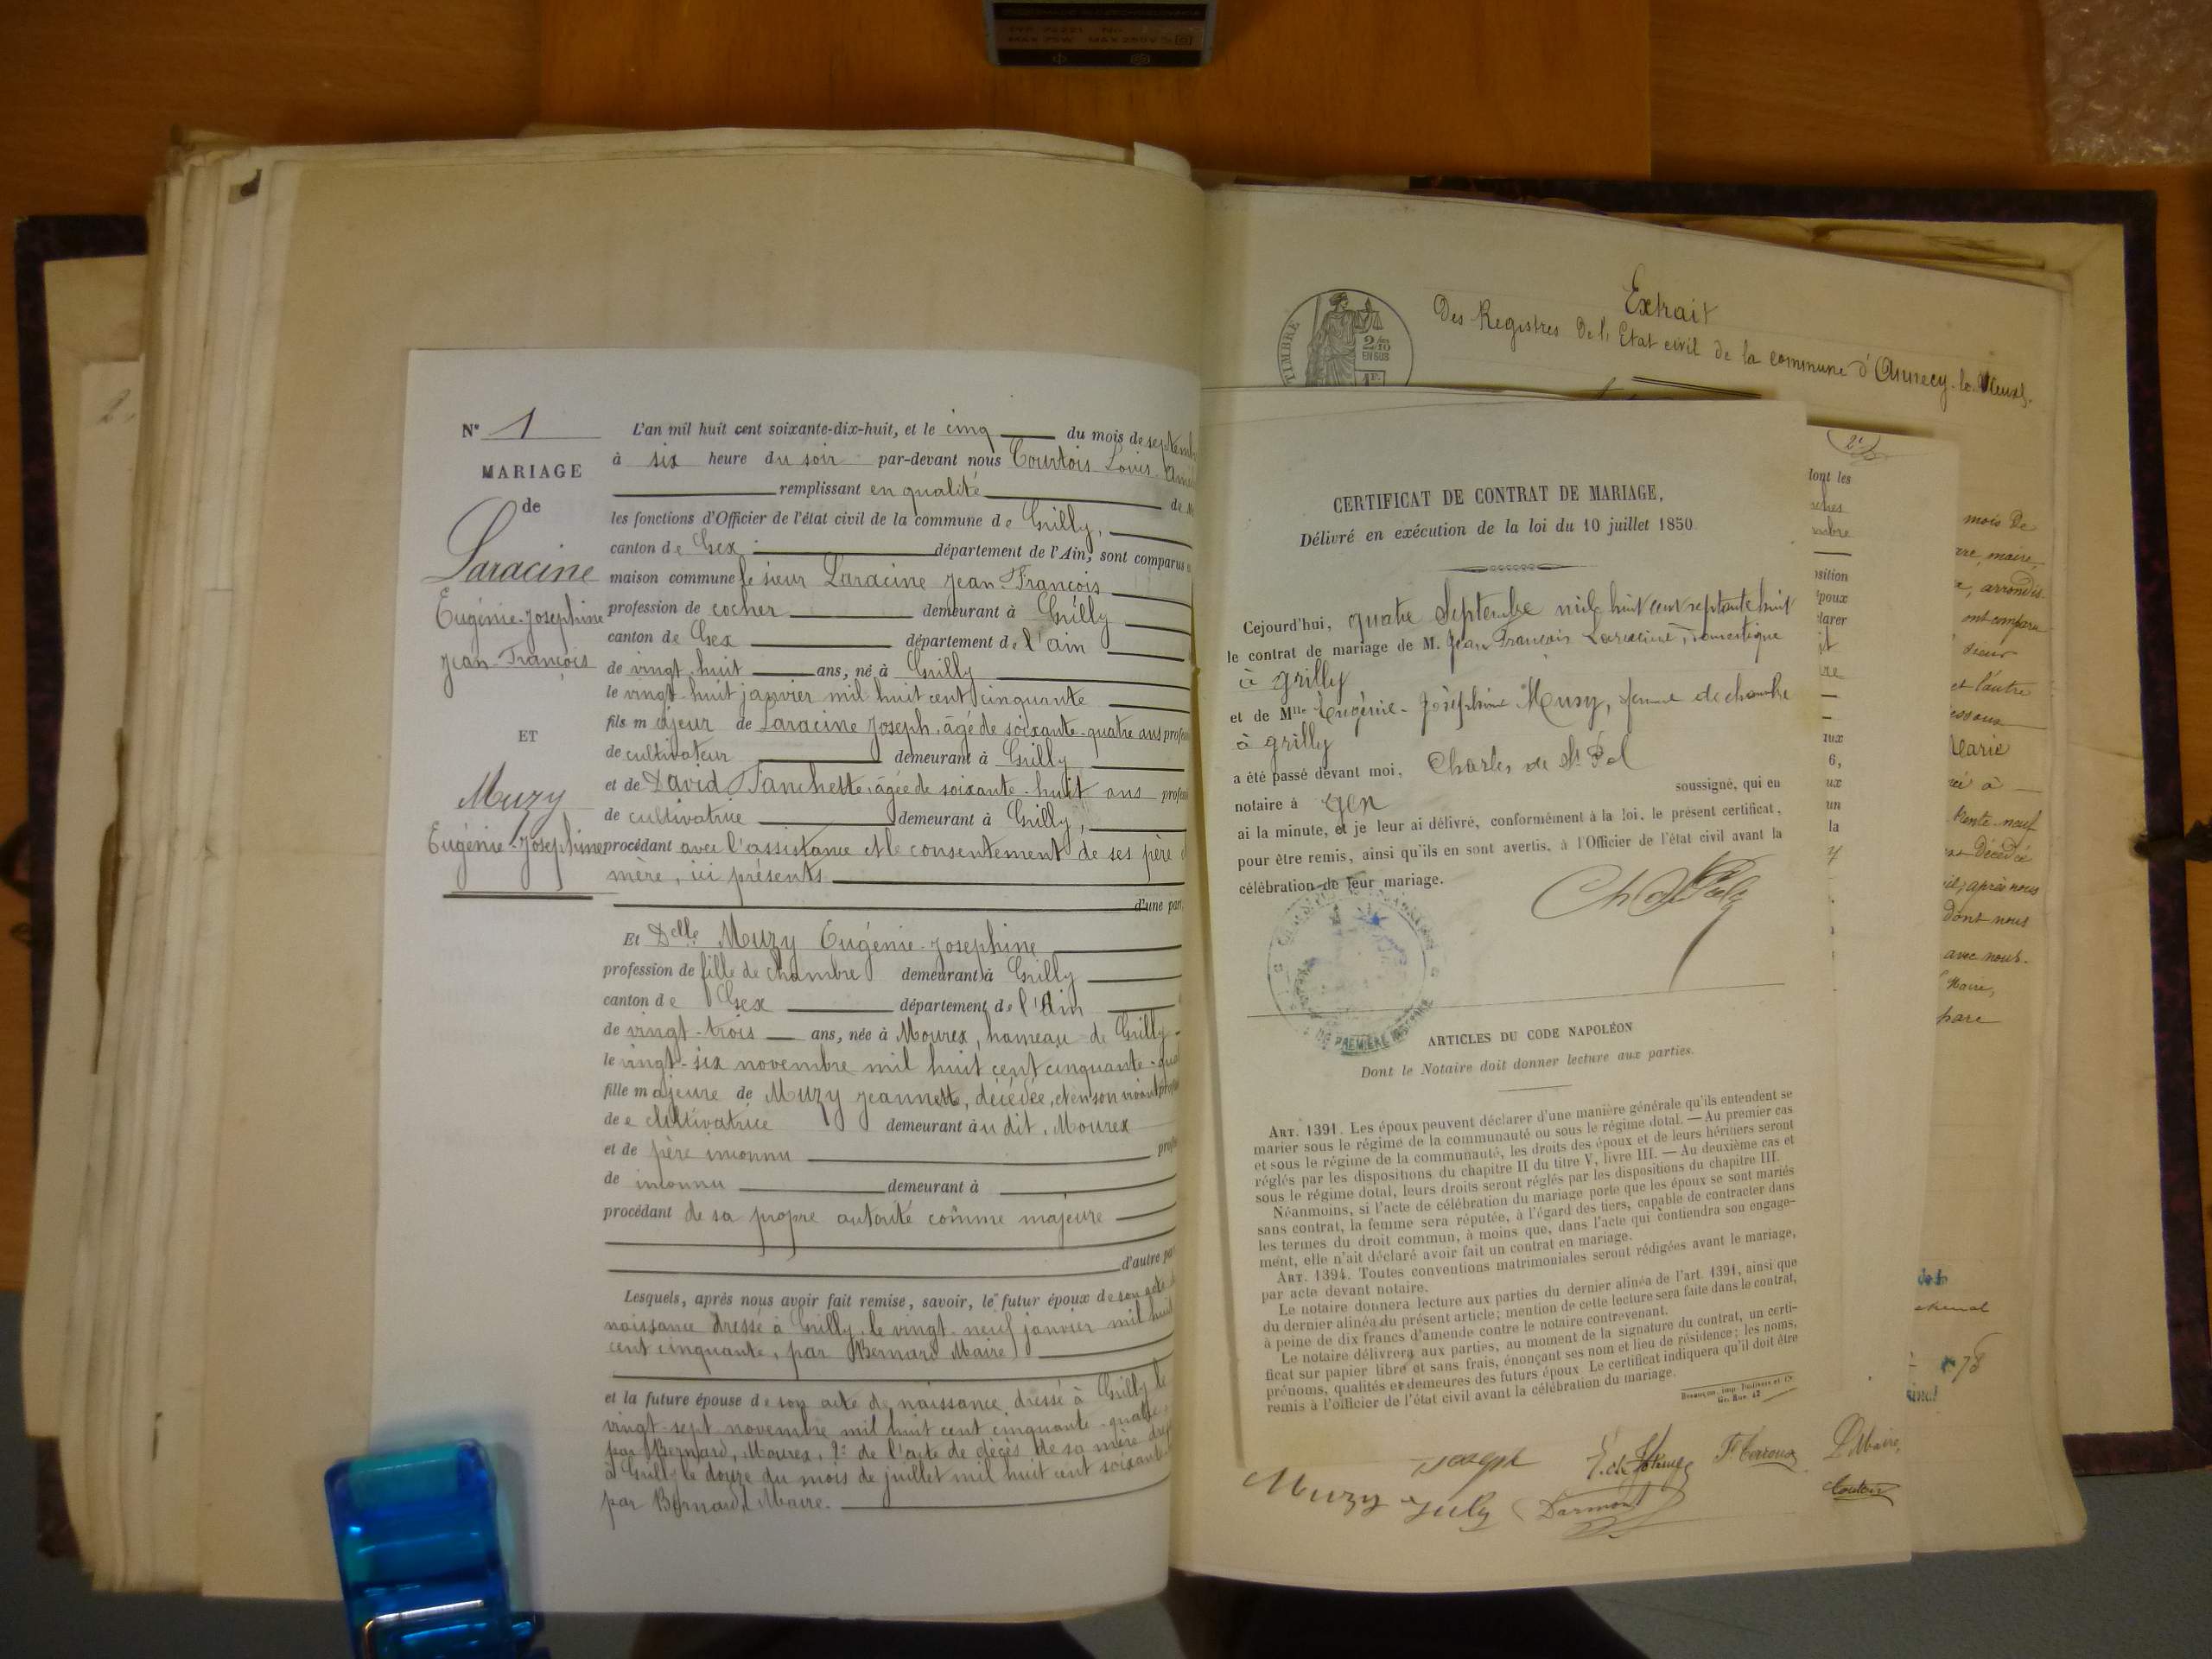 N° 1
MARIAGE
de
Laracine
Eugénie-Josephine
Jean-François
ET
Muzy
Eugénie-Josephine
L'an mil huit cent soixante-dix-huit, et le cinq du mois de septemb
à six heure du soir par-devant nous Courtois Louis
remplissant en qualité de
les fonctions d'Officier de l'état civil de la commune de Grilly,
canton de Gex département de l'Ain, sont comparus
maison commune le sieur Laracine Jean-François
profession de cocher demeurant à Grilly
canton de Gex département de l'ain
de vingt-huit ans, né à Grilly
le vingt-huit janvier mil huit cent cinquante
fils majeur de Laracine Joseph, âgé de soixante-quatre ans profes
de cultivateur demeurant à Grilly
et de David Fanchette, âgée de soixante-huit ans profes
de cultivatrice demeurant à Grilly,
procédant avec l'assistance et le consentement de ses père
mère, ici présents
d'une par
Et Delle Muzy Eugénie-Josephine
profession de fille de chambre demeurant à Grilly
canton de Gex département de l'Ain
de vingt-trois ans, née à Mourex, hameau de Grilly
le vingt-six novembre mil huit cent cinquante-qua
fille majeure de Muzy Jeannette, décédée, et en son vivant
de cultivatrice demeurant au dit Mourex
et de père inconnu profe
de inconnu demeurant à
procédant de sa propre autorité comme majeure
d'autre par
Lesquels, après nous avoir fait remise, savoir, le futur époux de son acte
naissance dressé à Grilly, le vingt-neuf janvier mil huit
cent cinquante, par Bernard Maire
et la future épouse de son acte de naissance, dressé à Grilly le
vingt-sept novembre mil huit cent cinquante-quatre
par Bernard, Mourex, 2° de l'acte de décès de sa mère
à Grilly le douze du mois de juillet mil huit cent soixante
par Bernard, Maire.
TIMBRE
2/10
EN SUS
1F.
Extrait
Des Registres De l'Etat civil de la commune d'Annecy-le-Vieux.
CERTIFICAT DE CONTRAT DE MARIAGE,
Délivré en exécution de la loi du 10 juillet 1850
Cejourd'hui, quatre Septembre mil huit cent septante huit
le contrat de mariage de M. Jean François Laracine, Domestique
à Grilly
et de Mlle Eugénie-Joséphine Musy, femme de chambre
à Grilly
a été passé devant moi, Charles de St Pol
soussigné, qui en
notaire à Gex
ai la minute, et je leur ai délivré, conformément à la loi, le présent certificat,
pour être remis, ainsi qu'ils en sont avertis, à l'Officier de l'état civil avant la
célébration de leur mariage.
DE PREMIÈRE
ARTICLES DU CODE NAPOLÉON
Dont le Notaire doit donner lecture aux parties.
ART. 1391. Les époux peuvent déclarer d'une manière générale qu'ils entendent se
marier sous le régime de la communauté ou sous le régime dotal. — Au premier cas
et sous le régime de la communauté, les droits des époux et de leurs héritiers seront
réglés par les dispositions du chapitre II du titre V, livre III. — Au deuxième cas et
sous le régime dotal, leurs droits seront réglés par les dispositions du chapitre III.
Néanmoins, si l'acte de célébration du mariage porte que les époux se sont mariés
sans contrat, la femme sera réputée, à l'égard des tiers, capable de contracter dans
les termes du droit commun, à moins que, dans l'acte qui contiendra son engage-
ment, elle n'ait déclaré avoir fait un contrat en mariage.
ART. 1394. Toutes conventions matrimoniales seront rédigées avant le mariage,
par acte devant notaire.
Le notaire donnera lecture aux parties du dernier alinéa de l'art. 1391, ainsi que
du dernier alinéa du présent article; mention de cette lecture sera faite dans le contrat,
à peine de dix francs d'amende contre le notaire contrevenant.
Le notaire délivrera aux parties, au moment de la signature du contrat, un certi-
ficat sur papier libre et sans frais, énonçant ses nom et lieu de résidence; les noms,
prénoms, qualités et demeures des futurs époux. Le certificat indiquera qu'il doit être
remis à l'officier de l'état civil avant la célébration du mariage.
Muzy July
Joseph
Darmont
dont les
mbre
sition
époux
larer
6,
un
la
mois De
maire,
arrondis
ont comparu
sieur
et l'autre
essous
Marie
à
trente-neuf
décédé
après nous
dont nous
avec nous.
Maire,
78